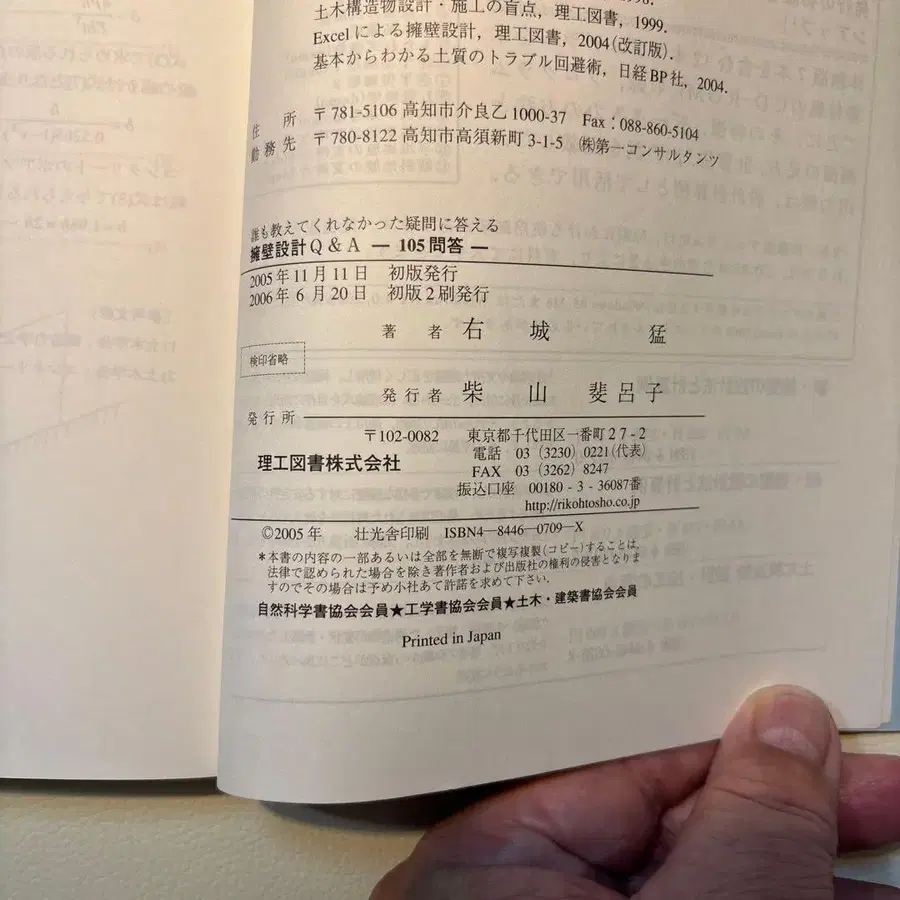 土木構造物設計・施工の盲点，理工図書，1999.
Excelによる擁壁設計，理工図書，2004（改訂版）.
基本からわかる土質のトラブル回避術，日経BP社，2004.
住所 〒781-5106 高知市介良乙1000-37 Fax：088-860-5104
勤務先 〒780-8122 高知市高須新町3-1-5 ㈱第一コンサルタンツ
誰も教えてくれなかった疑問に答える
擁壁設計Q&A ― 105問答 ―
2005年11月11日 初版発行
2006年6月20日 初版2刷発行
著者 右城 猛
検印省略
発行者 柴山 斐呂子
発行所
〒102-0082 東京都千代田区一番町27-2
電話 03（3230）0221（代表）
理工図書株式会社
FAX 03（3262）8247
振込口座 00180-3-36087番
http://rikohtosho.co.jp
©2005年 壮光舎印刷 ISBN4―8446―0709―X
＊本書の内容の一部あるいは全部を無断で複写複製（コピー）することは，
法律で認められた場合を除き著作者および出版社の権利の侵害となりま
すのでその場合は予め小社あて許諾を求めて下さい．
自然科学書協会会員★工学書協会会員★土木・建築書協会会員
Printed in Japan